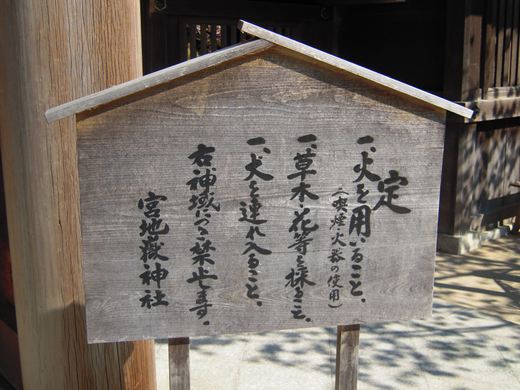 定
一、火を用いること、
(喫煙・火器の使用)
一、草木・花等を採ること、
一、犬を連れ入ること、
右神域につき禁止します。
宮地嶽神社